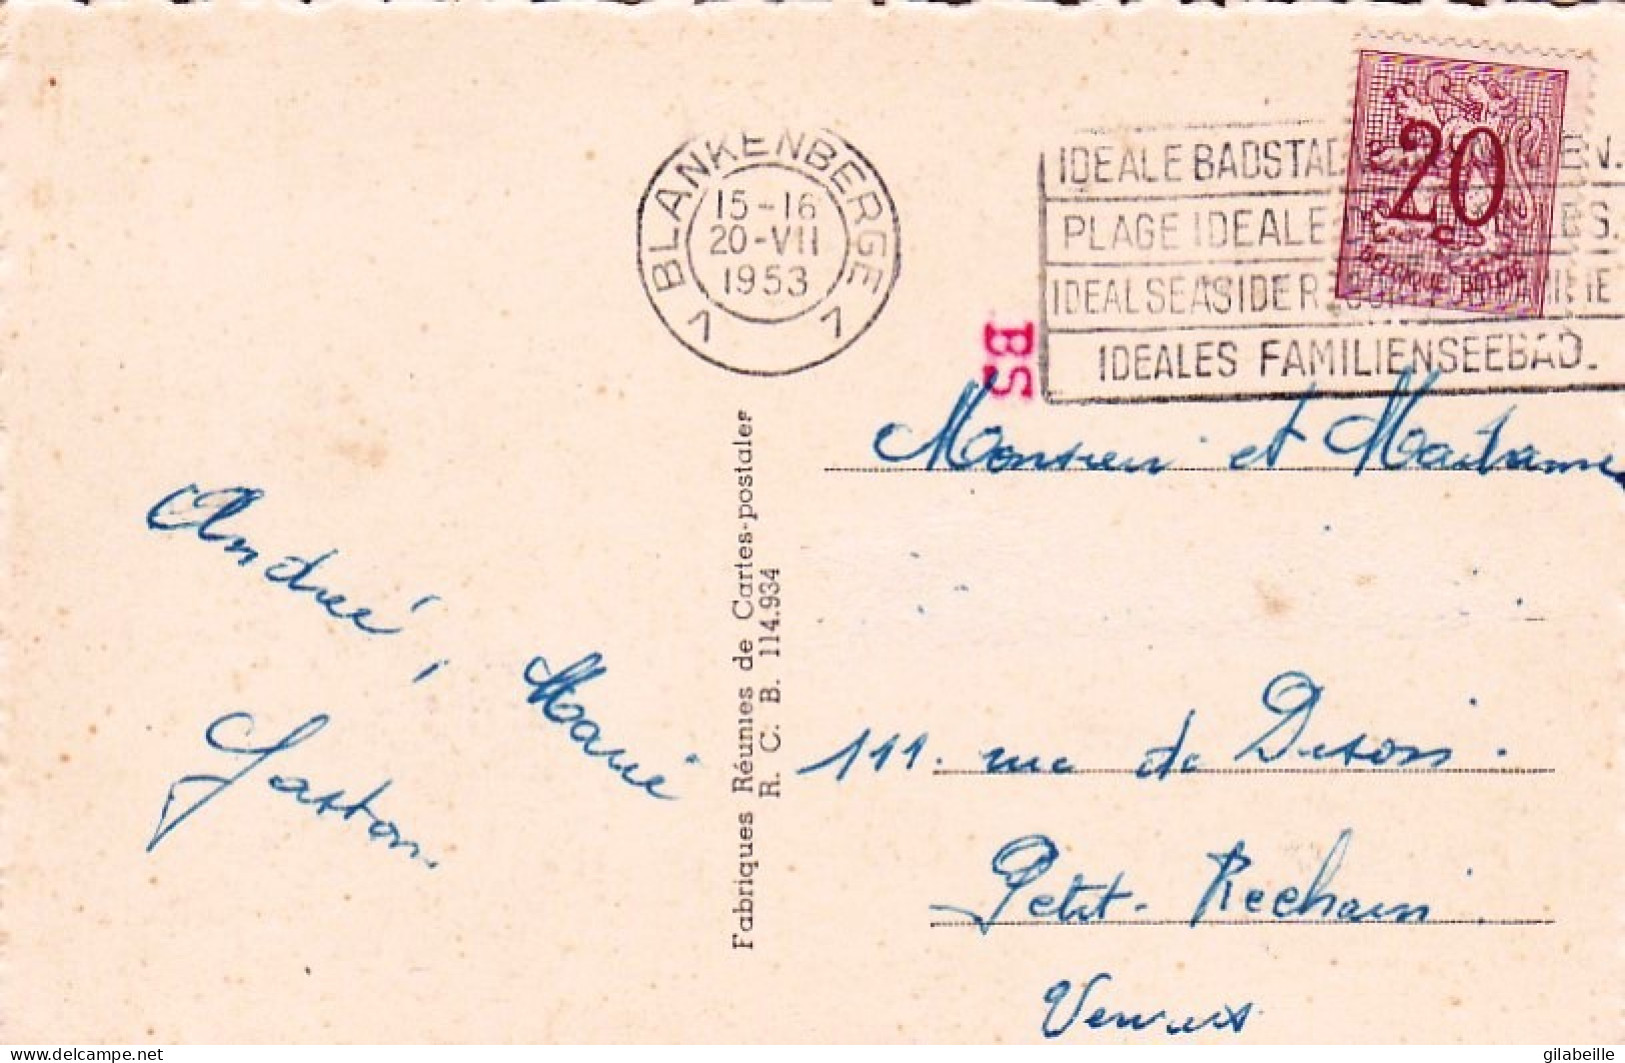 BLANKENBERGE
15-16
20-VII
1953
V V
IDEALE BADSTAD
PLAGE IDEALE
IDEAL SEASIDE
IDEALES FAMILIENSEEBAD.
20
BELGIQUE BELGIE
BS
Monsieur et Madame
111. rue de Dison.
Petit-Rechain
Verviers
André, Marie
Gaston.
Fabriques Réunies de Cartes-postales
R. C. B. 114.934
www.delcampe.net
gilabeille